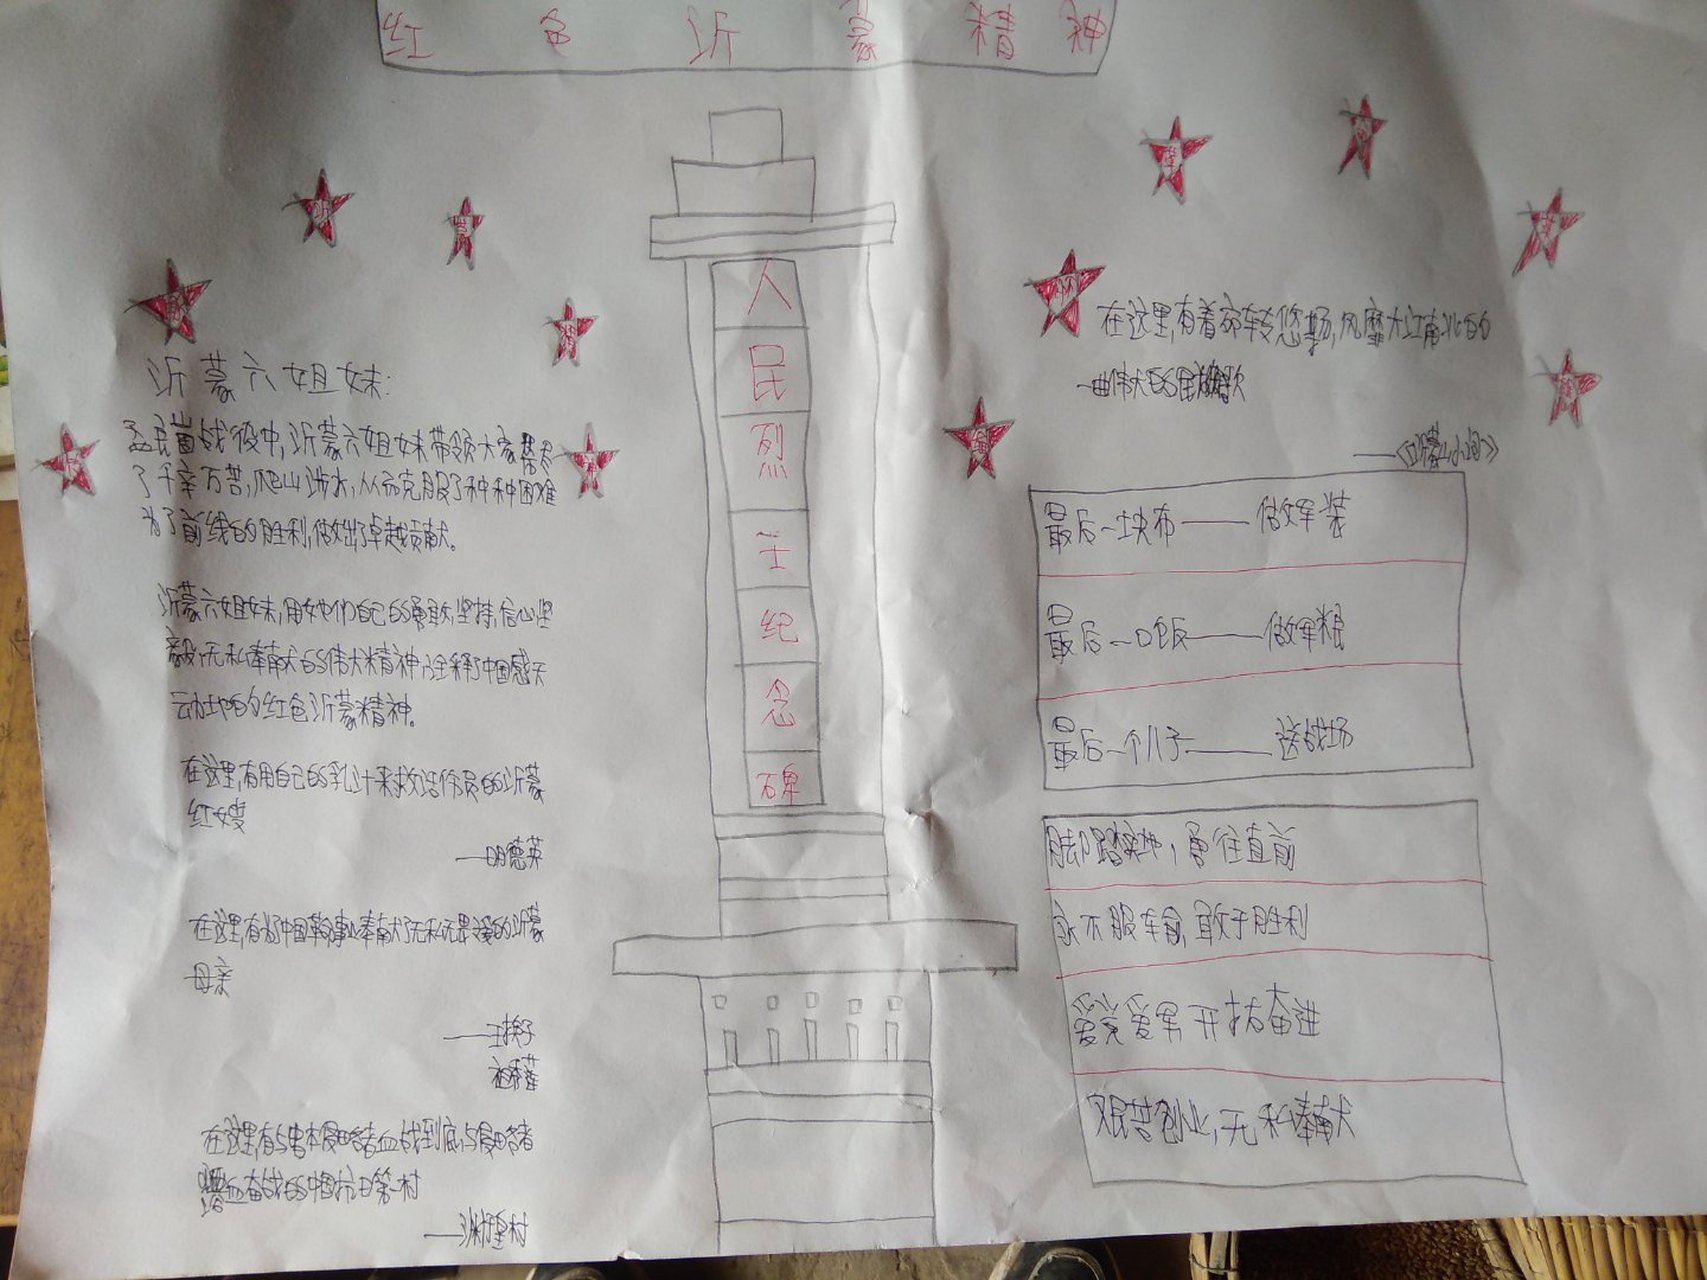 红色沂蒙精神
人民烈士纪念碑
沂蒙六姐妹:
孟良崮战役中,沂蒙六姐妹带领大家
了千辛万苦,爬山涉水,从而克服了种种困难
为了前线的胜利,做出了卓越贡献。
沂蒙六姐妹,用她们自己的勇敢,坚持,信心坚
毅,无私奉献的伟大精神,诠释了中国感天
动地的红色沂蒙精神。
在这里,有用自己的乳汁来救治伤员的沂蒙
红嫂
——明德英
在这里,有为中国革命事业奉献了无私无畏的沂蒙
母亲
——王换于
祖秀莲
在这里,有与日本侵略者血战到底,与侵略者
血奋战的中国抗日第一村
——渊子崖村
在这里,有着婉转悠扬,风靡大江南北的
一曲伟大的民族歌
——《沂蒙山小调》
最后一块布——做军装
最后一口饭——做军粮
最后一个儿子——送战场
脚踏实地,勇往直前
永不服输,敢于胜利
爱党爱军 开拓奋进
艰苦创业,无私奉献